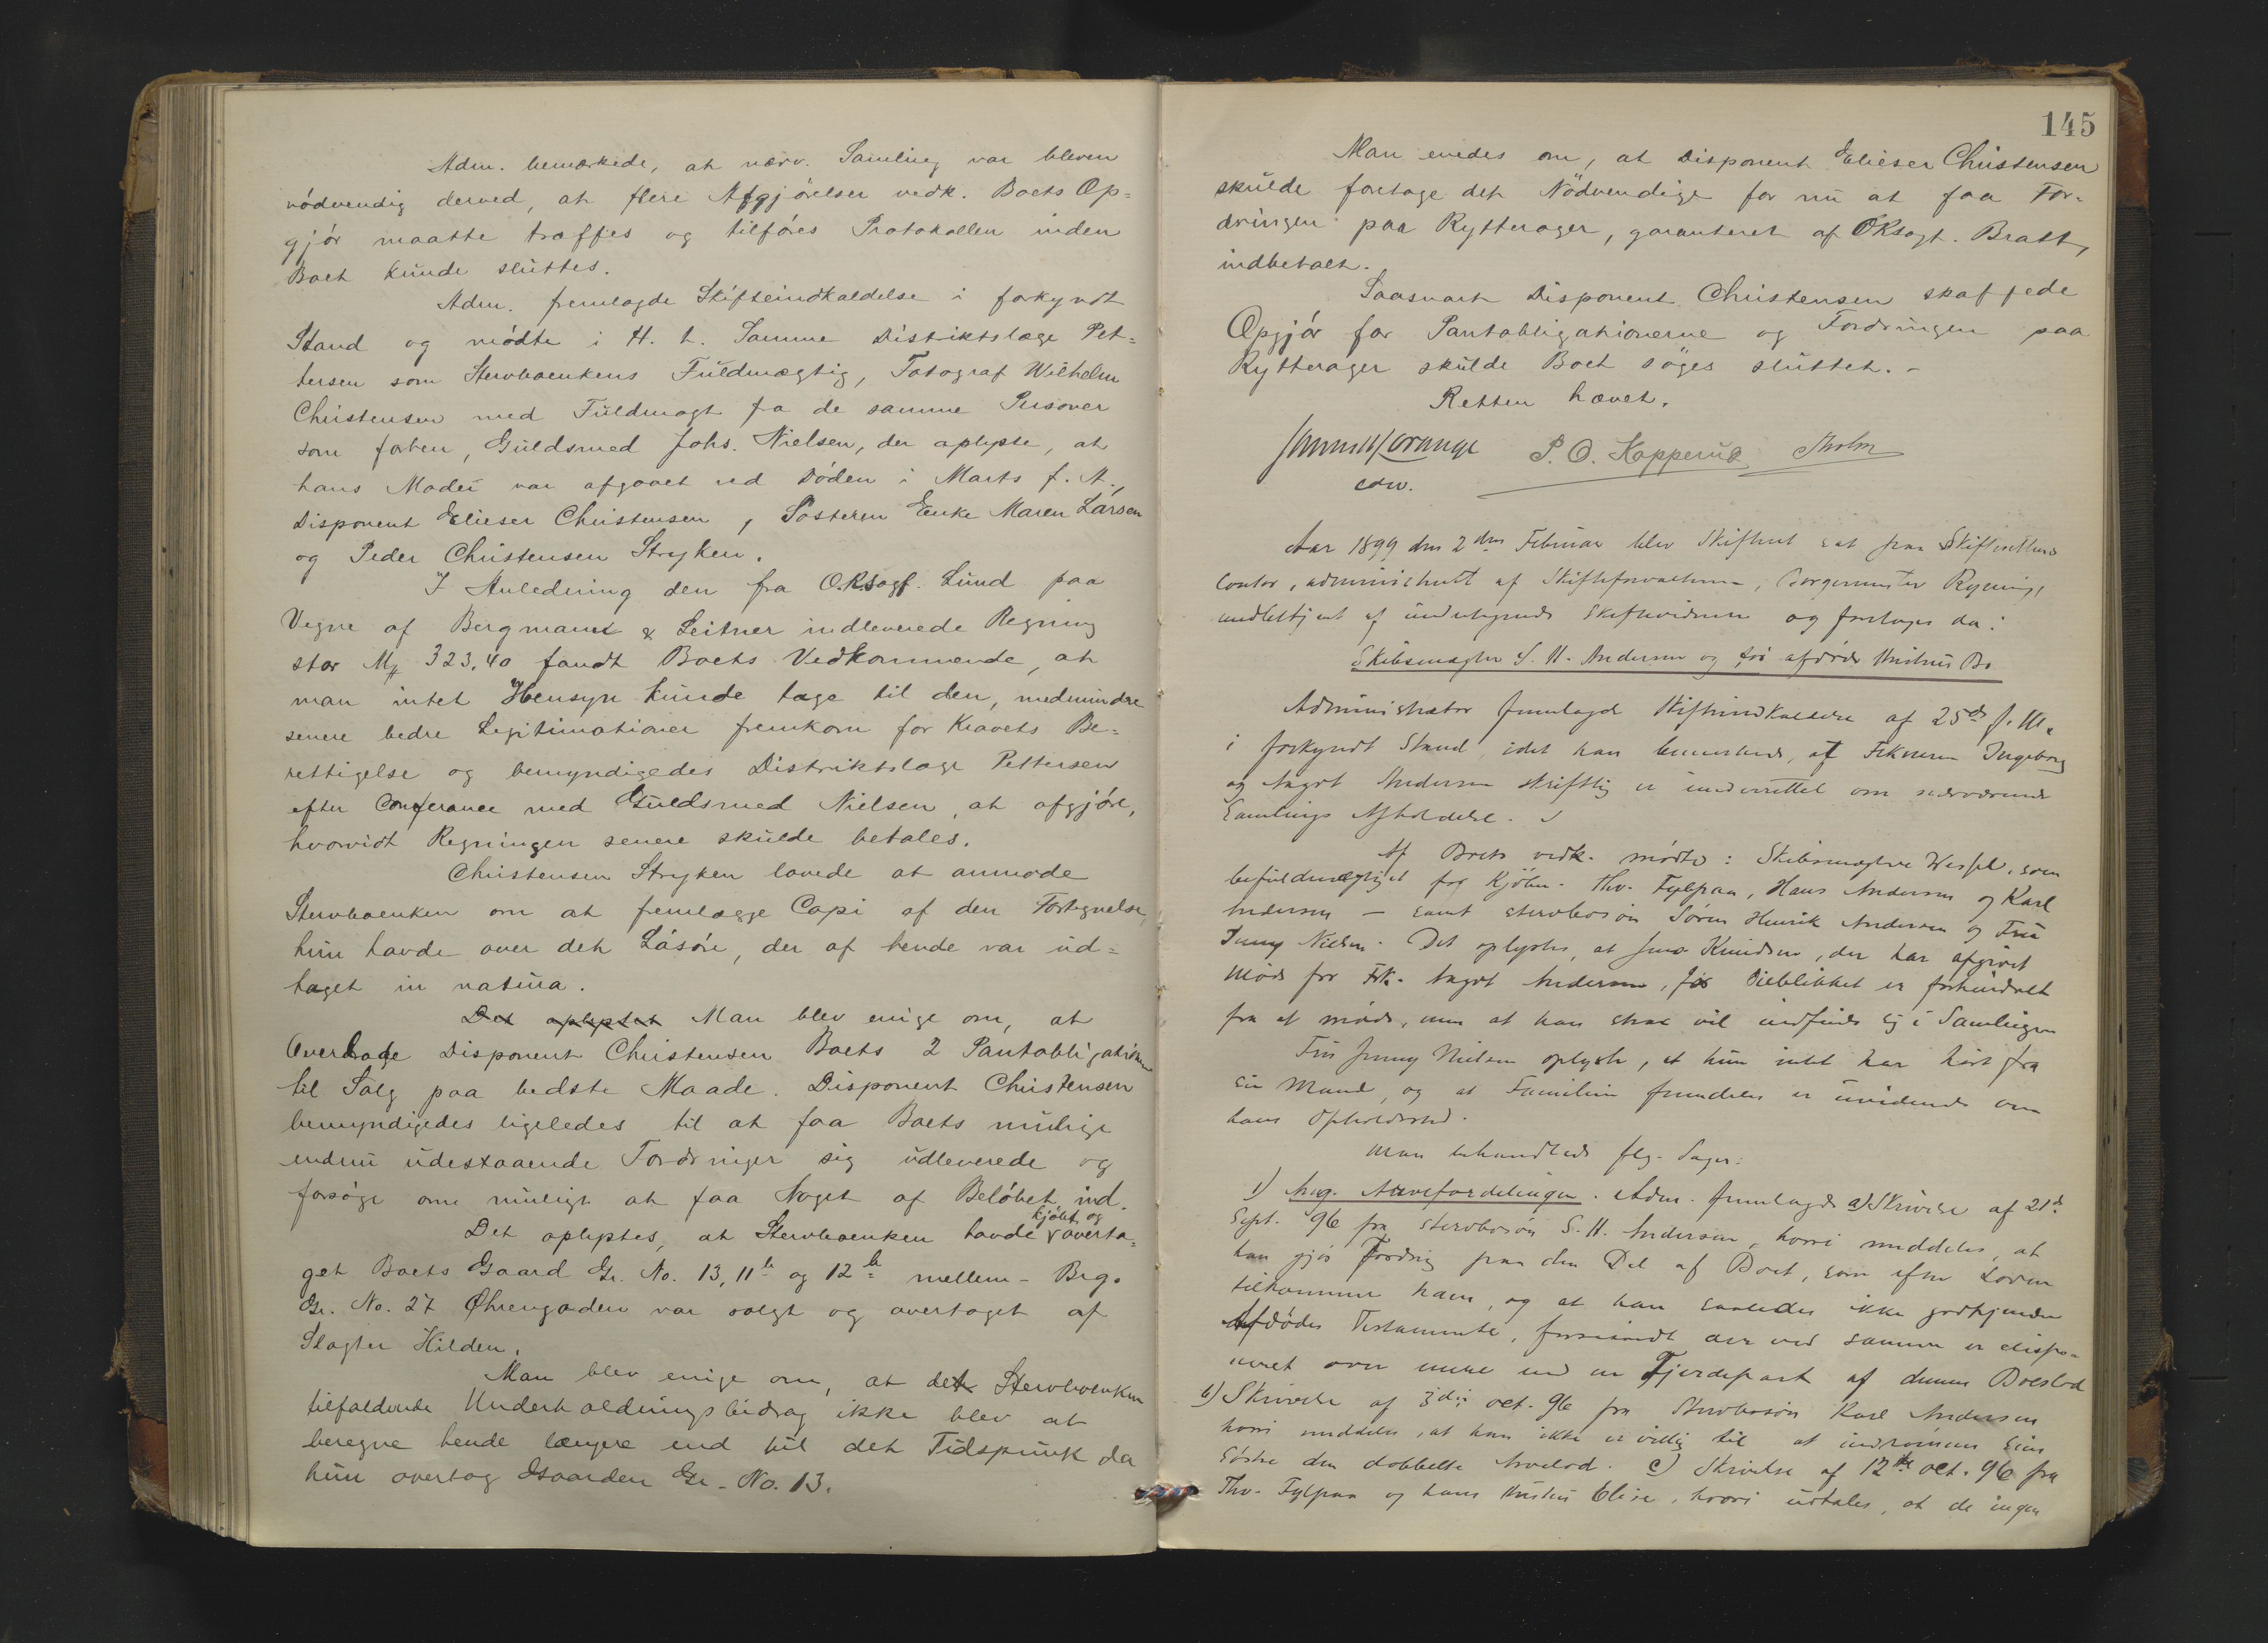 Adm. bemærkede, at nærv. Samling var bleven
nödvendig derved, at flere Afgjörelser vedk. Boets Op=
gjör maatte træffes og tilföres Protokollen inden
Boet kunde sluttes.
Adm. fremlagde Skifteindkaldelse i forkyndt
Stand og mödte i H. t. Samme Distriktslæge Pet=
tersen som Stervboenkens Fuldmægtig, Fotograf Wilhelm
Christensen med Fuldmagt fra de samme Personer
som forhen, Guldsmed Johs. Nielsen, der oplyste, at
hans Moder var afgaaet ved Döden i Marts f. A.,
Disponent Elieser Christensen, Sösteren Enke Maren Larsen
og Peder Christensen Stryken.
I Anledning den fra O.R.sagf. Lund paa
Vegne af Bergmann & Leitner indleverede Regning
stor M 323,40 fandt Boets Vedkommende, at
man intet Hensyn kunde tage til den, medmindre
senere bedre Legitimationer fremkom for Kravets Be=
rettigelse og bemyndigedes Distriktslæge Pettersen
efter Conferance med Guldsmed Nielsen, at afgjöre,
hvorvidt Regningen senere skulde betales.
Christensen Stryken lovede at anmode
Stervboenken om at fremlægge Copi af den Fortegnelse,
hun havde over det Lösöre, der af hende var ud=
taget in natura.
Det oplystes Man blev enige om, at
Overdrage Disponent Christensen Boets 2 Pantobligationer
til Salg paa bedste Maade. Disponent Christensen
bemyndigedes ligeledes til at faa Boets mulige
endnu udestaaende Fordringer sig udleverede og
forsöge om muligt at faa Noget af Belöbet ind.
Det oplystes, at Stervboenken havde kjöbt og overta=
get Boets Gaard Gr. No. 13, 11 b og 12 b mellem - Brg.
Gr. No. 27 Öhrengaden var solgt og overtaget af
Slagter Hilden.
Man blev enige om, at det Stervboenken
tilfaldende Underholdningsbidrag ikke blev at
beregne hende længere end til det Tidspunk da
hun overtog Gaarden Gr. No. 13.
145
Man enedes om, at Disponent Elieser Christensen
skulde foretage det Nödvendige for nu at faa For=
dringen paa Rytterager, garanteret af ORsagf. Bratt,
indbetalt.
Saasnart Disponent Christensen skaffede
Opgjör for Pantobligationerne og Fordringen paa
Rytterager skulde Boet söges sluttet. -
Retten hævet.
P. O. Kopperud Holm
Aar 1899 den 2den Februar blev Skifteret sat paa Skifterettens
Contor, administreret af Skifteforvalteren, Borgermester Rygning,
medbetjent af undertegnede Skiftevidner og foretages da:
Skibsmægler S. H. Andersen og för afdöde Hustrus Bo
Administrator fremlagde Skifteindkaldelse af 25de f. M.
i forkyndt Stand, idet han bemærkede, at Frknerne Ingeborg
og Aagot Andersen skriftlig er underrettet om nærværende
Samlings Afholdelse.
Af Boets vedk. mödte: Skibsmægler Wessel, som
befuldmægtiget for Kjöbm. Thv. Fylpaa, Hans Andersen og Karl
Andersen - samt stervbosön Sören Henrik Andersen og Fru
Jenny Nielsen. Det oplystes, at Jens Knudsen, der har afgivet
Möde for Frk. Aagot Andersen, for Öieblikket er forhindret
fra at möde, men at han strax vil indfinde sig i Samlingen
Fru Jenny Nielsen oplyste, at hun intet har hört fra
sin Mand, og at Familien fremdeles er uvidende om
hans Opholdssted.
Man behandlede flg. Sager:
1) Ang. Arvefordelingen. Adm. fremlagde a) Skrivelse af 21de
Sept. 96 fra stervbosön S. H. Andersen, hvori meddeles, at
han gjör Fordring paa den Del af Boet, som efter Loven
tilkommer ham, og at han saaledes ikke godkjender
Afdödes Testamente, forsaavidt der ved samme er dispo=
neret over mere end en Fjerdepart af dennes Boeslod
b) Skrivelse af 3die oct. 96 fra Stervbosön Karl Andersen
hvori meddeles, at han ikke er villig til at indrömme sine
Söstre den dobbelte Arvelod. c) Skrivelse af 12te oct. 96 fra
Thv. Fylpaa og hans Hustru Elise, hvori udtales, at de ingen